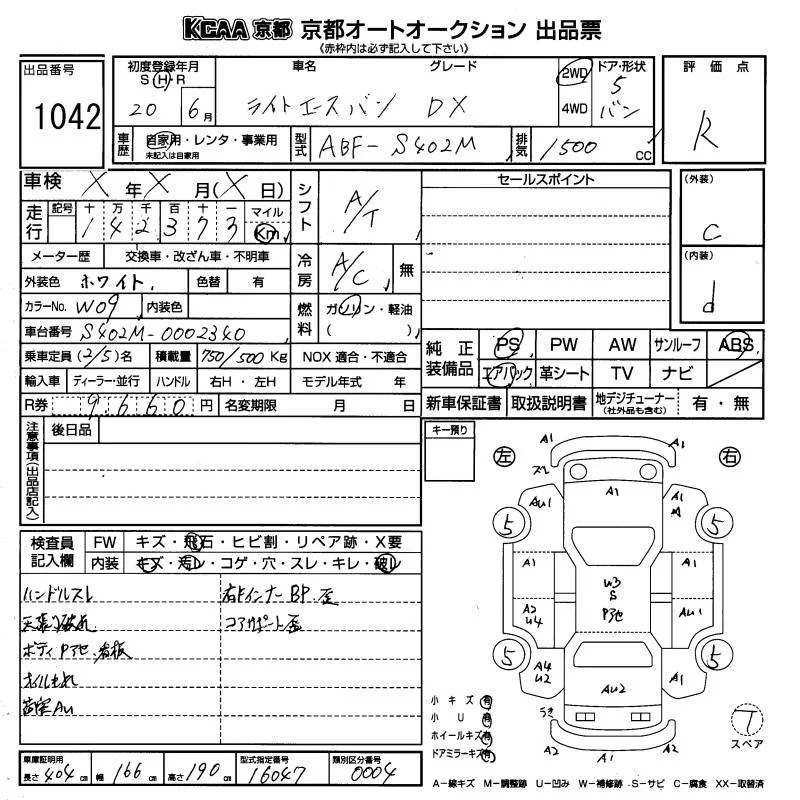 KCAA 京都 京都オートオークション 出品票
《赤枠内は必ず記入して下さい》
出品番号
1042
初度登録年月
S H・R
20 6月
車名 グレード
ライトエースバン DX
2WD
4WD
ドア・形状
5
バン
評価点
R
車歴
自家用・レンタ・事業用
未記入は自家用
型式 ABF-S402M
排気 1500 cc
車検 X年X月(X日)
走行
記号 十 万 千 百 十 一
1 4 2 3 7 3
マイル
Km
シフト A/T
メーター歴 交換車・改ざん車・不明車
外装色 ホワイト 色替 有
冷房 A/C 無
カラーNo. W09 内装色
燃料 ガソリン・軽油
( )
車台番号 S402M-0002340
乗車定員 (2/5)名 積載量 750/500 Kg NOX 適合・不適合
輸入車 ディーラー・並行 ハンドル 右H・左H モデル年式 年
R券 9660円 名変期限 月 日
セールスポイント
(外装)
C
(内装)
d
純正装備品
PS PW AW サンルーフ ABS
エアバック 革シート TV ナビ
新車保証書 取扱説明書 地デジチューナー 有・無
(社外品も含む)
注意事項(出品店記入)
後日品
キー預り
検査員記入欄
FW キズ・飛石・ヒビ割・リペア跡・X要
内装 キズ・汚レ・コゲ・穴・スレ・キレ・破レ
ハンドルスレ
天張り破れ
ボディPアセ、看板
オイルもれ
荷室AU
右Fインナー BP 歪
コアサポート歪
左 右
A1 A1
ズレ
AU1 A1 A1
5 5
A1 A1
W3
S
Pアセ
A2
U4
AU1
5 5
A4
U2
AU2
A1
うき
A2 A1 A2
小キズ 有
小U 有
ホイールキズ 有
ドアミラーキズ 有
T
スペア
車庫証明用
長さ 404cm 幅 166cm 高さ 190cm
型式指定番号
16047
類別区分番号
0004
A-線キズ M-調整跡 U-凹み W-補修跡 S-サビ C-腐食 XX-取替済